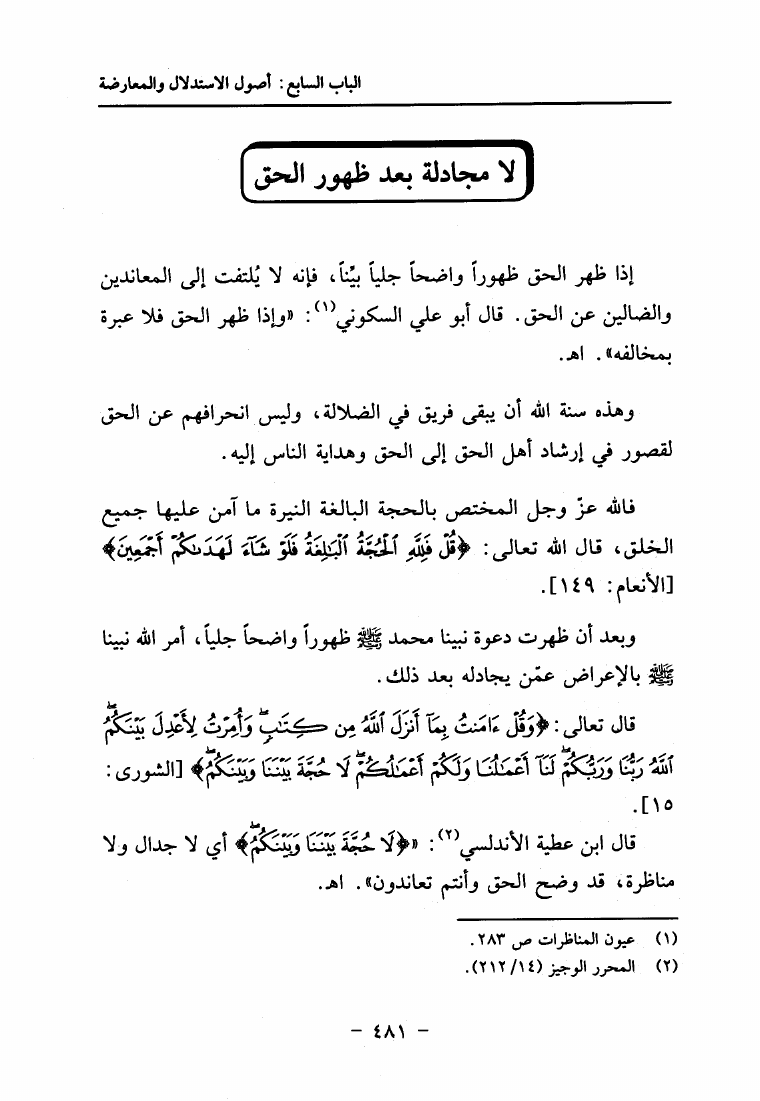 الباب السابع: أصول الاستدلال والمعارضة
لا مجادلة بعد ظهور الحق
إذا ظهر الحق ظهوراً واضحاً جلياً بيّناً، فإنه لا يُلتفت إلى المعاندين
والضالين عن الحق. قال أبو علي السكوني(١): «وإذا ظهر الحق فلا عبرة
بمخالفه». اهـ.
وهذه سنة الله أن يبقى فريق في الضلالة، وليس انحرافهم عن الحق
لقصور في إرشاد أهل الحق إلى الحق وهداية الناس إليه.
فالله عزّ وجل المختص بالحجة البالغة النيرة ما آمن عليها جميع
الخلق، قال الله تعالى: ﴿قُلْ فَلِلَّهِ الْحُجَّةُ الْبَالِغَةُ فَلَوْ شَاءَ لَهَدَىٰكُمْ أَجْمَعِينَ﴾
[الأنعام: ١٤٩].
وبعد أن ظهرت دعوة نبينا محمد ﷺ ظهوراً واضحاً جلياً، أمر الله نبينا
ﷺ بالإعراض عمّن يجادله بعد ذلك.
قال تعالى: ﴿وَقُلْ ءَامَنتُ بِمَآ أَنزَلَ ٱللَّهُ مِن كِتَٰبٍۖ وَأُمِرْتُ لِأَعْدِلَ بَيْنَكُمُۖ
ٱللَّهُ رَبُّنَا وَرَبُّكُمْۖ لَنَآ أَعْمَٰلُنَا وَلَكُمْ أَعْمَٰلُكُمْۖ لَا حُجَّةَ بَيْنَنَا وَبَيْنَكُمُۖ﴾ [الشورى:
١٥].
قال ابن عطية الأندلسي(٢): «﴿لَا حُجَّةَ بَيْنَنَا وَبَيْنَكُمُۖ﴾ أي لا جدال ولا
مناظرة، قد وضح الحق وأنتم تعاندون». اهـ.
(١) عيون المناظرات ص ٢٨٣.
(٢) المحرر الوجيز (٢١٢/١٤).
– ٤٨١ –